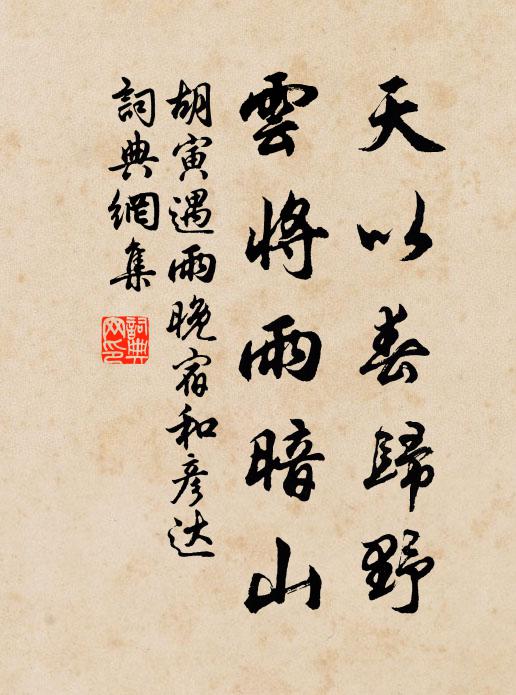 天以春歸野
雲將雨暗山
胡寅遇雨晚宿和彥达
詞典網集
詞典
网印